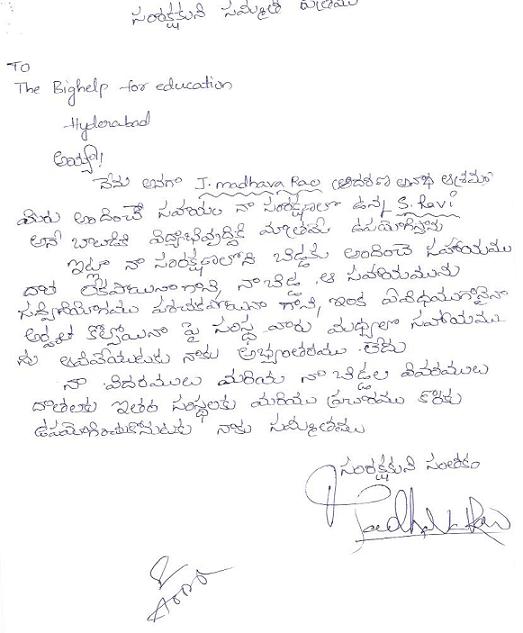 సంరక్షకుని సమ్మతి పత్రము
To
The Bighelp for education
Hyderabad
అయ్యా!
నేను అనగా J. madhava Rao (ఆదరణ అనాథ ఆశ్రమం
మీరు అందించే సహాయం నా సంరక్షణలో ఉన్న S. Ravi
అనే బాలుడికి విద్యాభివృద్ధికి మాత్రమే ఉపయోగిస్తాను
ఇట్లా నా సంరక్షణలోని బిడ్డకు అందించె సహాయము
దాత లేకపోయినా గాని, నా బిడ్డ ఆ సహాయమును
సద్వినియోగము పరచకపోయినా గాని, ఇంక ఏవిధముగానైనా
అర్హత కోల్పోయినా పై సంస్థ వారు మధ్యలో సహాయము
ను ఆపివేయుటకు నాకు అభ్యంతరము లేదు
నా వివరములు మరియు నా బిడ్డల వివరములు
దాతలకు ఇతర సంస్థలకు మరియు ప్రచారము కొరకు
ఉపయోగించుకోనుటకు నాకు సమ్మతము
సంరక్షకుని సంతకం